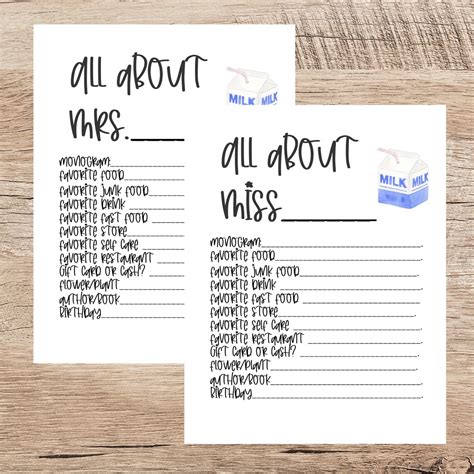 all about
mrs.________
MILK MILK
monogram
favorite food
favorite junk food
favorite drink
favorite fast food
favorite store
favorite self care
favorite restaurant
gift card or cash?
flower/plant
author/book
Birthday
all about
miss________
MILK MILK
monogram
favorite food
favorite junk food
favorite drink
favorite fast food
favorite store
favorite self care
favorite restaurant
gift card or cash?
flower/plant
author/book
Birthday